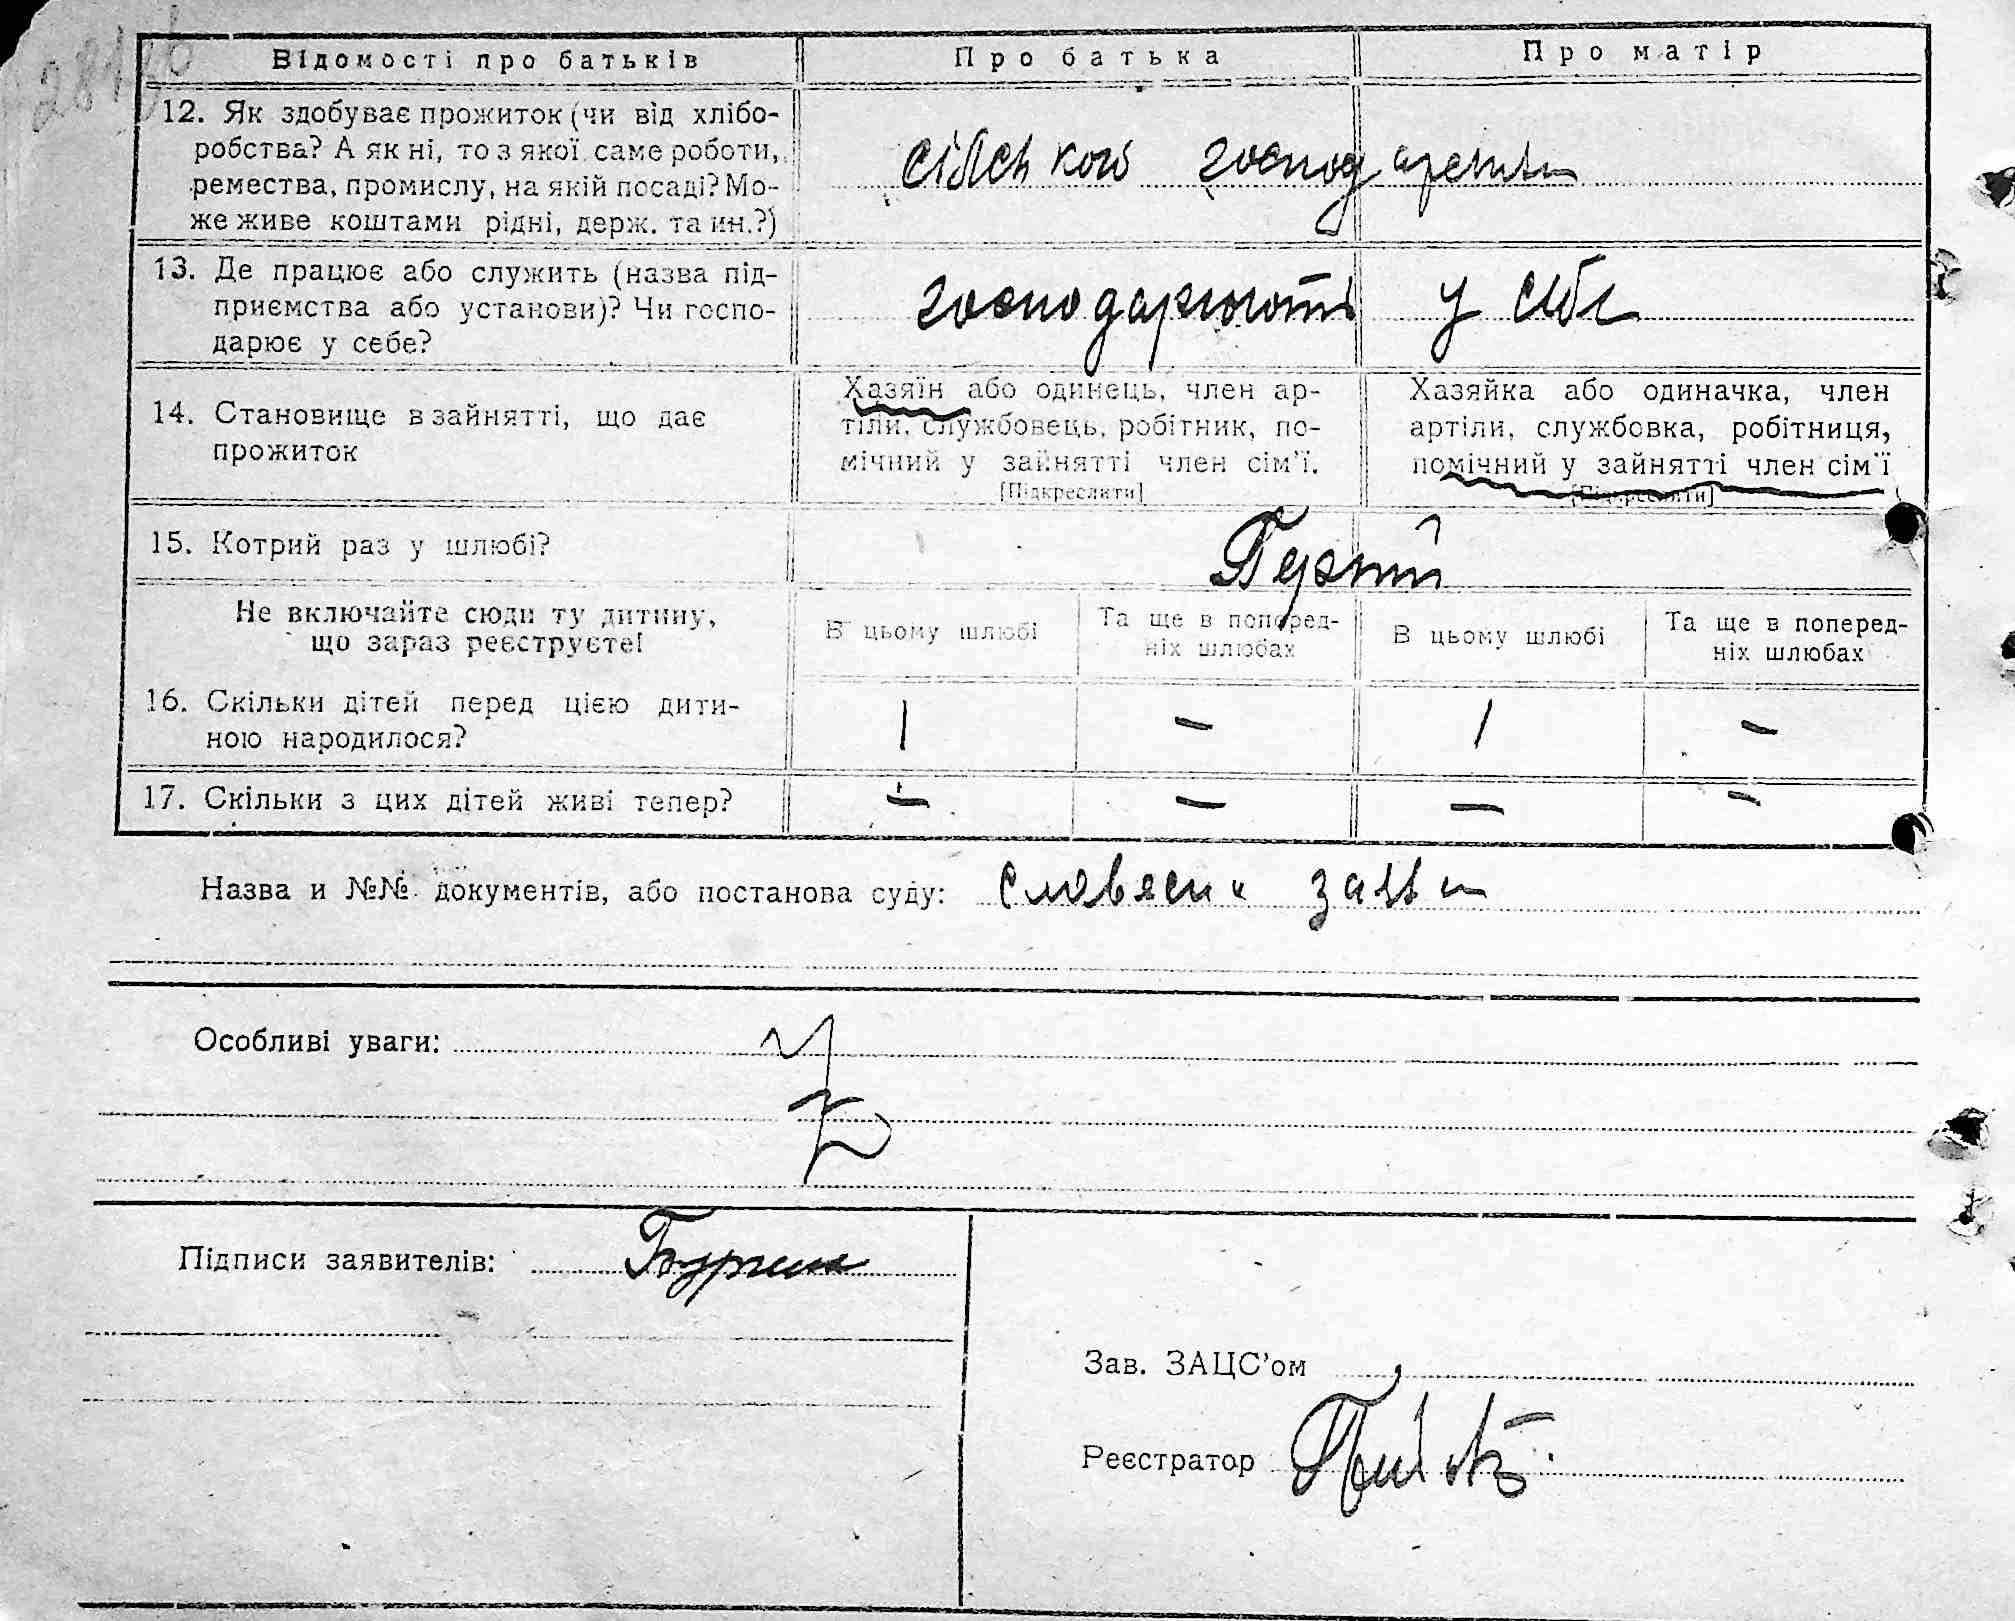 Відомості про батьків Про батька Про матір
12. Як здобуває прожиток (чи від хлібо-
робства? А як ні, то з якої саме роботи,
ремества, промислу, на якій посаді? Мо-
же живе коштами рідні, держ. та ин.?)
сільського господарення
13. Де працює або служить (назва під-
приємства або установи)? Чи госпо-
дарює у себе?
господарюють у себе
14. Становище в зайнятті, що дає
прожиток
Хазяїн або одинець, член ар-
тіли, службовець, робітник, по-
мічний у зайнятті член сім'ї.
[Підкреслити]
Хазяйка або одиначка, член
артіли, службовка, робітниця,
помічний у зайнятті член сім'ї
[Підкреслити]
15. Котрий раз у шлюбі?
Не включайте сюди ту дитину,
що зараз реєструєте!
В цьому шлюбі
Та ще в поперед-
ніх шлюбах
В цьому шлюбі
Та ще в поперед-
ніх шлюбах
16. Скільки дітей перед цією дити-
ною народилося?
1 – 1 –
17. Скільки з цих дітей живі тепер?
– – – –
Назва и №№ документів, або постанова суду: заява
Особливі уваги:
Підписи заявителів:
Зав. ЗАЦС'ом
Реєстратор